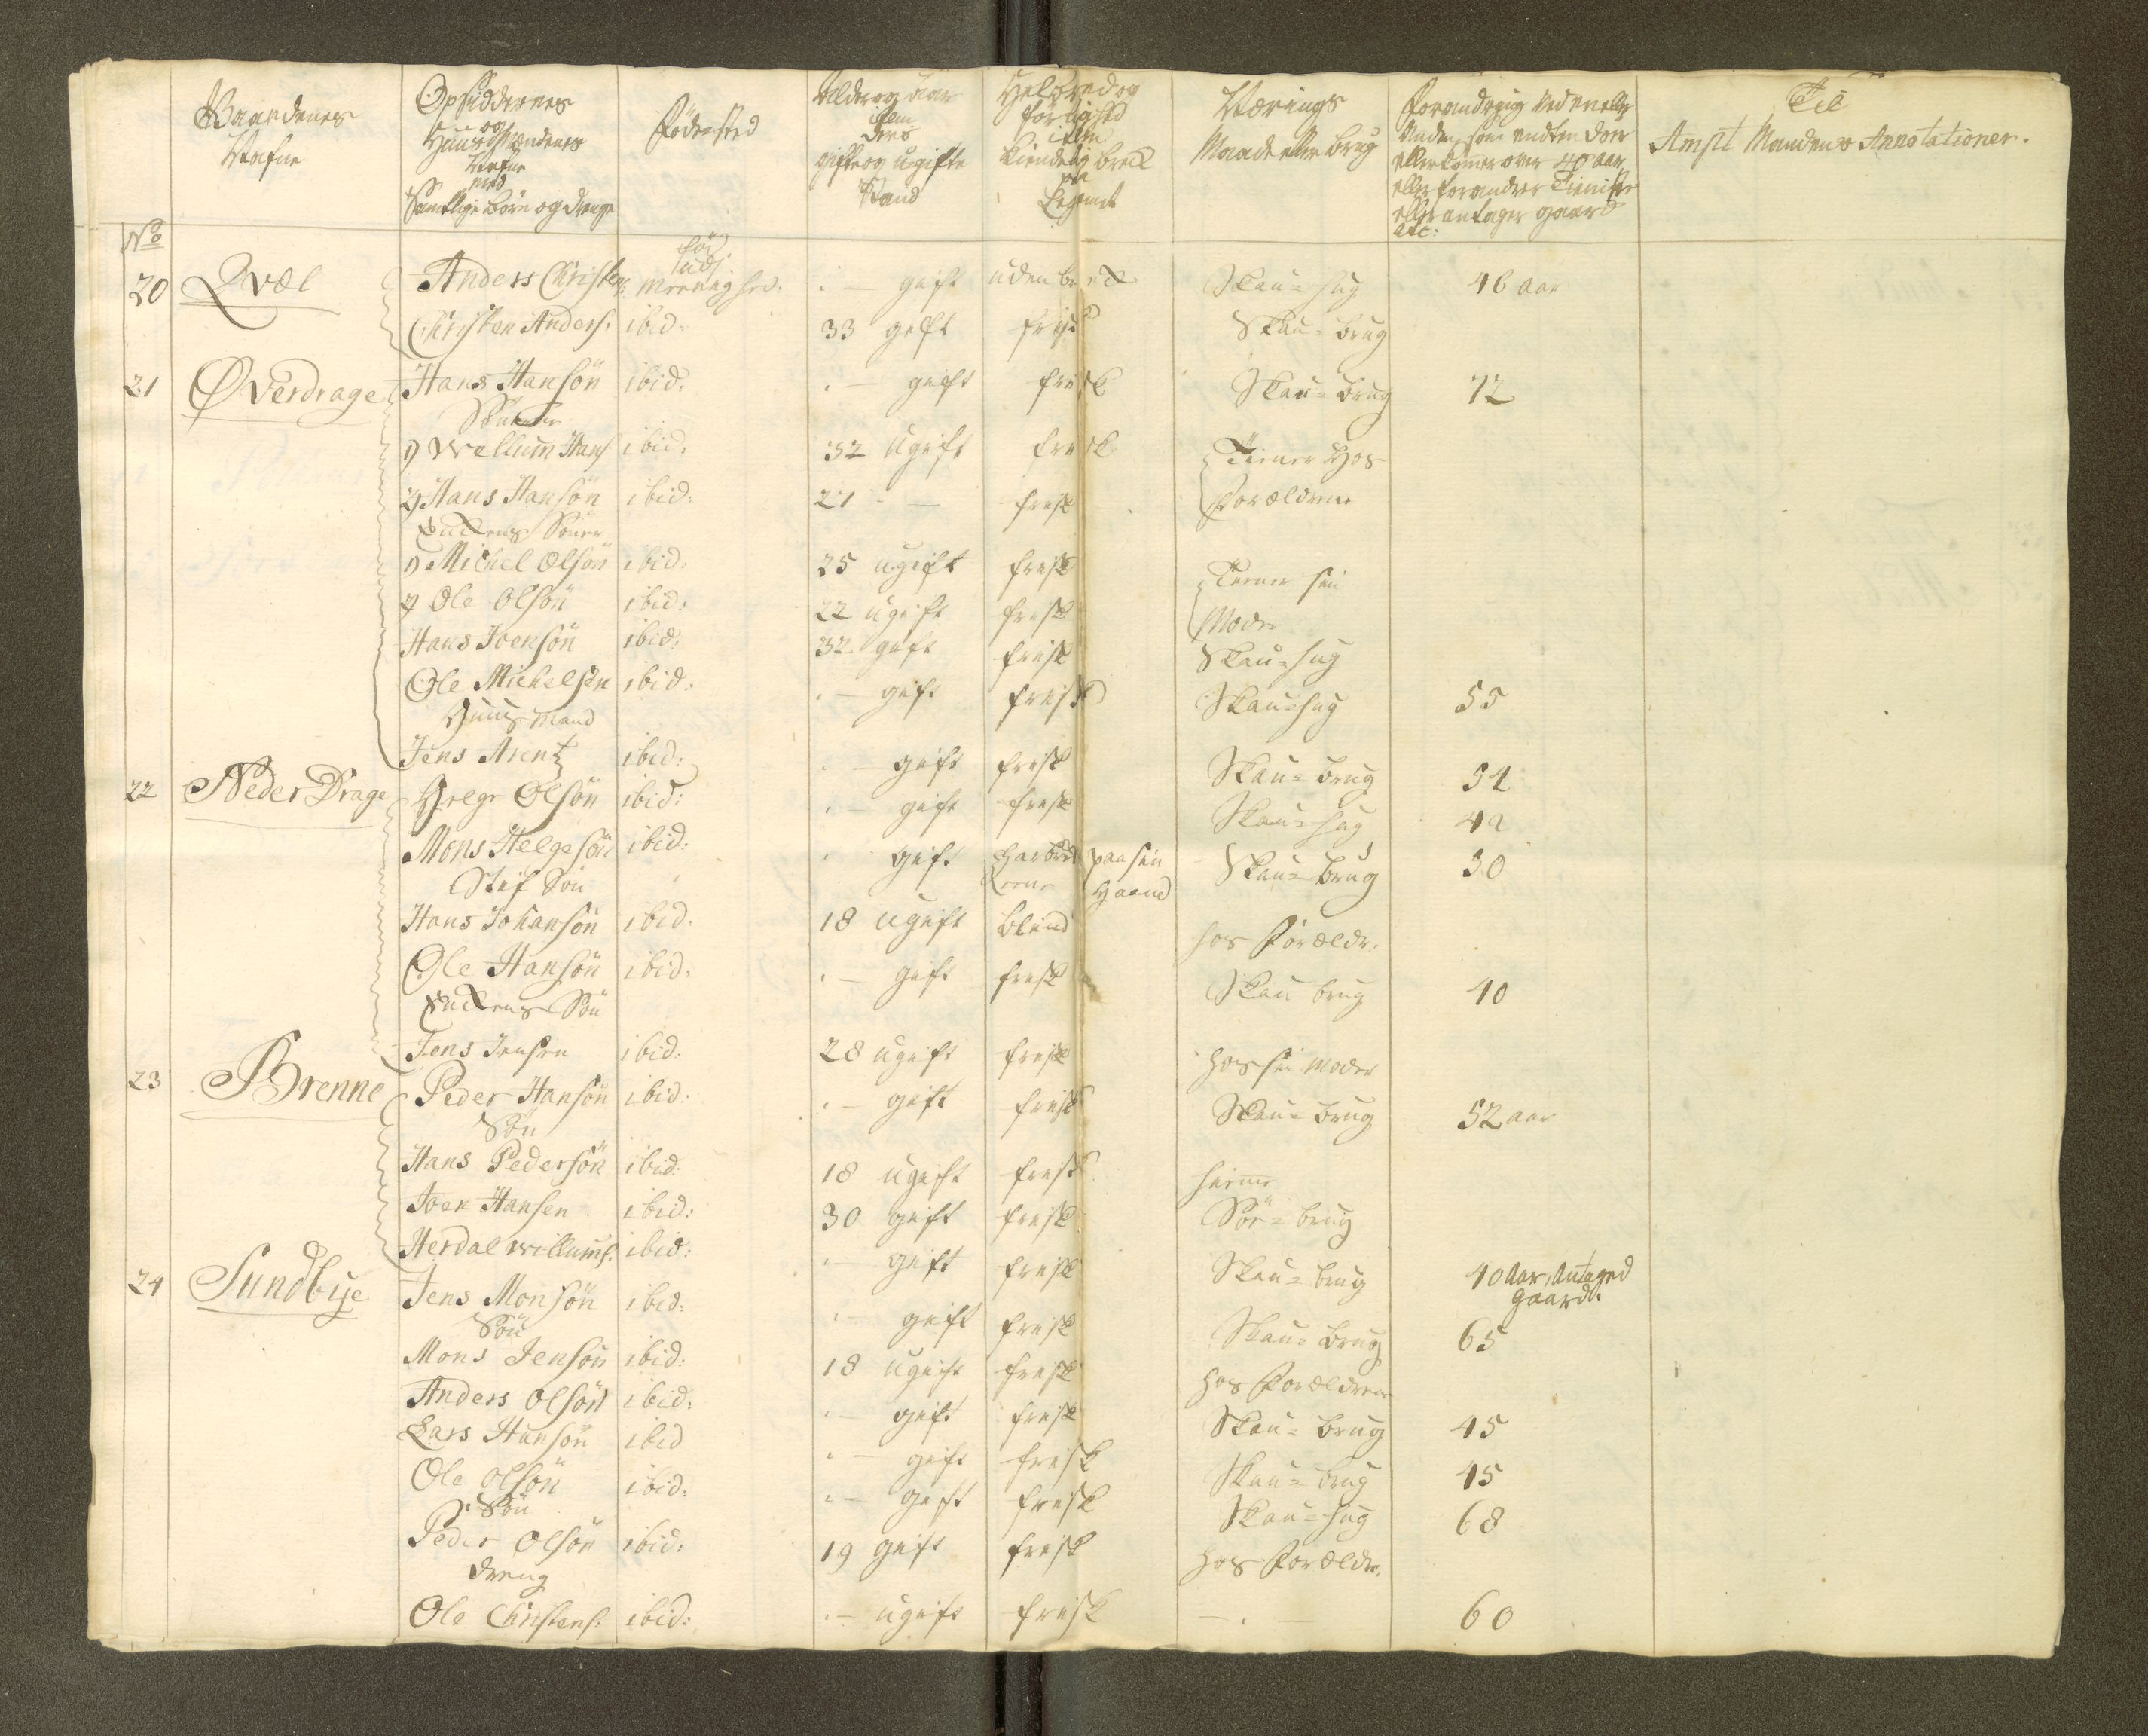 Gaardenes Nafne | Opsiddernes og Huusmændenes Nafne med Samtlige börn og drenge | Föde-sted | Alder og aar item Ders gifte og ugifte Stand | Helbred og förlighed item kiendelig breck paa Legemet | Nærings Maade eller brug | Forandring ved en eller anden, som endten döer eller kommer over 40 aar eller forandrer Tieniste eller antager gaard etc: | Til Ampt Mandens Annotationer.
No
20 Qvæl | Anders Christens: | föd udj Morvig | - gift | uden breck | Skau-hug | 46 aar
Christen Anders: | ibid: | 33 gift | frisk | Skau-brug
21 Øverdrage | Hans Hansön | ibid: | - gift | frisk | Skau-brug | 72
Sönner
1) Wellum Hans: | ibid: | 32 ugift | frisk | Tiener Hos
2) Hans Hansön | ibid: | 21 - | frisk | Forældrene
Enckens Söner
1) Michel Olsön | ibid: | 25 ugift | frisk | Tiener sin
2) Ole Olsön | ibid: | 22 ugift | frisk | Moder
Hans Joensön | ibid: | 32 gift | frisk | Skau-hug
Ole Michelsen | ibid: | - gift | frisk | Skau-hug | 55
Huusmand
Jens Arentz | ibid: | - gift | frisk | Skau-brug | 54
22 Neder Drage | Helge Olsön | ibid: | - gift | frisk | Skau-hug | 42
Mons Helgesön | ibid: | gift | har paa sin Haand | Skau-brug | 30
Stif Sön
Hans Johansön | ibid: | 18 ugift | blind | hos Forældr.
Ole Hansön | ibid: | - gift | frisk | Skau brug | 40
Enckens Sön
Jens Jensen | ibid: | 28 ugift | frisk | hos sin Moder
23 Brenne | Peder Hansön | ibid: | - gift | frisk | Skau-brug | 52 aar
Sön
Hans Pedersön | ibid: | 18 ugift | frisk | hiemme
Joen Hansen | ibid: | 30 gift | frisk | Sör-brug
Herdal willums: | ibid: | - gift | frisk | Skau-brug | 40 Aar, Antaged gaard.
24 Sundbye | Jens Monsön | ibid: | - gift | frisk | Skau-brug | 65
Sön
Mons Jensön | ibid: | 18 ugift | frisk | hos Forældrene
Anders Olsön | ibid: | - gift | frisk | Skau-brug | 45
Lars Hansön | ibid | - gift | frisk | Skau-brug | 45
Ole Olsön | ibid: | - gift | frisk | Skau-hug | 68
Sön
Peder Olsön | ibid: | 19 gift | frisk | hos Forældr.
dreng
Ole Christens: | ibid: | - ugift | frisk | - . - | 60